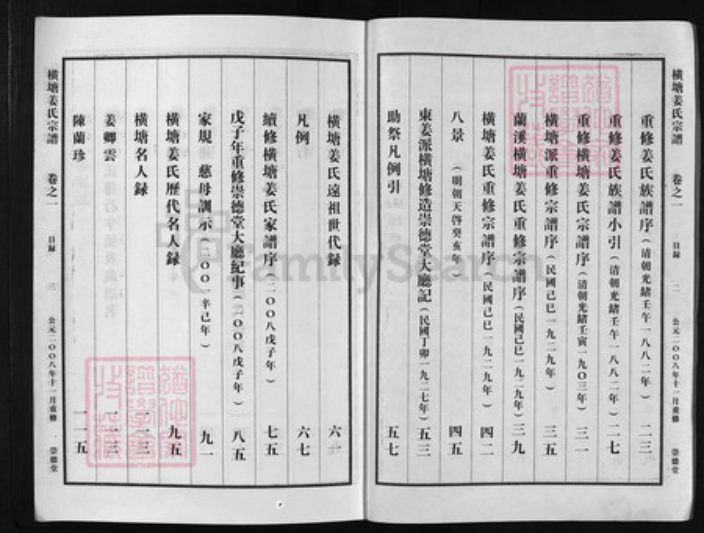 橫塘姜氏宗譜 卷之一 目錄 二 公元二〇〇八年十一月重修 崇德堂
重修姜氏族譜序（清朝光緒壬午一八八二年） 二三
重修姜氏族譜小引（清朝光緒壬午一八八二年） 二七
重修橫塘姜氏宗譜序（清朝光緒壬寅一九〇三年） 三一
橫塘派重修宗譜序（民國己巳一九二九年） 三五
蘭溪橫塘姜氏重修宗譜序（民國己巳一九二九年） 三九
橫塘姜氏重修宗譜序（民國己巳一九二九年） 四二
八景（明朝天啓癸亥年） 四五
東姜派橫塘修造崇德堂大廳記（民國丁卯一九二七年） 五三
助祭凡例引 五七
橫塘姜氏遠祖世代錄 六一
凡例 六七
續修橫塘姜氏家譜序（二〇〇八戊子年） 七五
戊子年重修崇德堂大廳紀事（二〇〇八戊子年） 八五
家規 慈母訓示（二〇〇一辛巳年） 九一
橫塘姜氏歷代名人錄 九五
橫塘名人錄 一一三
姜卿雲 一一三
陳蘭珍 一一五
橫塘姜氏宗譜 卷之一 目錄 三 公元二〇〇八年十一月重修 崇德堂
FamilySearch